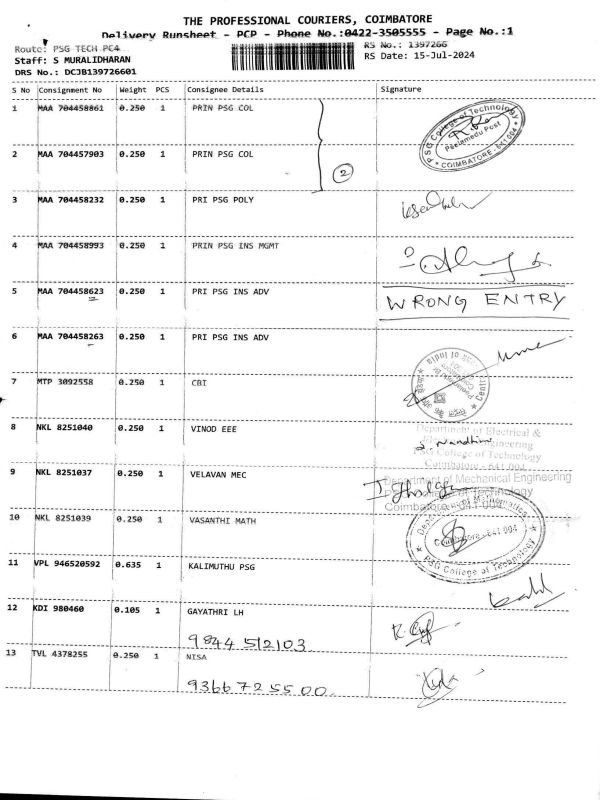 THE PROFESSIONAL COURIERS, COIMBATORE
Delivery Runsheet - PCP - Phone No.:0422-3505555 - Page No.:1
Route: PSG TECH PC4 RS No.: 1397266
Staff: S MURALIDHARAN RS Date: 15-Jul-2024
DRS No.: DCJB139726601
S No Consignment No Weight PCS Consignee Details Signature
1 MAA 704458861 0.250 1 PRIN PSG COL
PSG College of Technology
Peelamedu Post
COIMBATORE - 641 004
2 MAA 704457903 0.250 1 PRIN PSG COL
2
3 MAA 704458232 0.250 1 PRI PSG POLY
4 MAA 704458993 0.250 1 PRIN PSG INS MGMT
5 MAA 704458623 0.250 1 PRI PSG INS ADV WRONG ENTRY
6 MAA 704458263 0.250 1 PRI PSG INS ADV
7 MTP 3092558 0.250 1 CBI
8 NKL 8251040 0.250 1 VINOD EEE
Department of Electrical &
PSG College of Technology
Coimbatore - 641 004
9 NKL 8251037 0.250 1 VELAVAN MEC
Department of Mechanical Engineering
Coimbatore - 641 004
10 NKL 8251039 0.250 1 VASANTHI MATH
Department of Mathematics
Coimbatore - 641 004
PSG College of Technology
11 VPL 946520592 0.635 1 KALIMUTHU PSG
12 KDI 980460 0.105 1 GAYATHRI LH
9844512103
13 TVL 4378255 0.250 1 NISA
9366725500